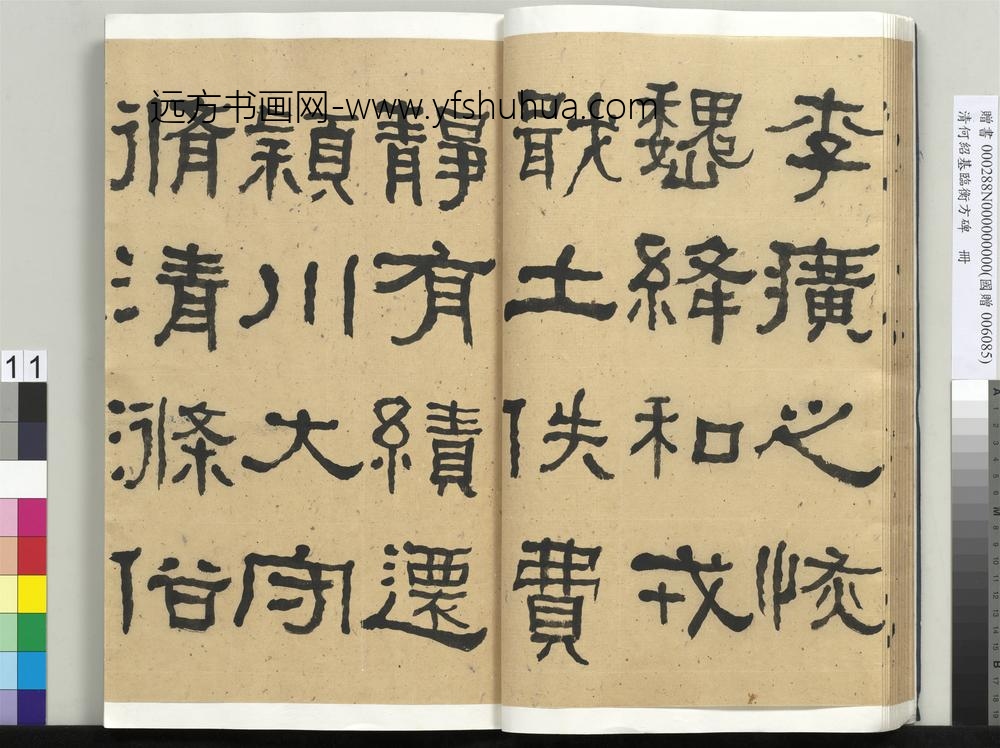 李廣之恢
魏絳和戎
戢士佚費
靜有績還
穎川大守
脩清滌俗
远方书画网-www.yfshuhua.com
贈書 000288N000000000(國贈 006085)
清何紹基臨衡方碑 冊
11